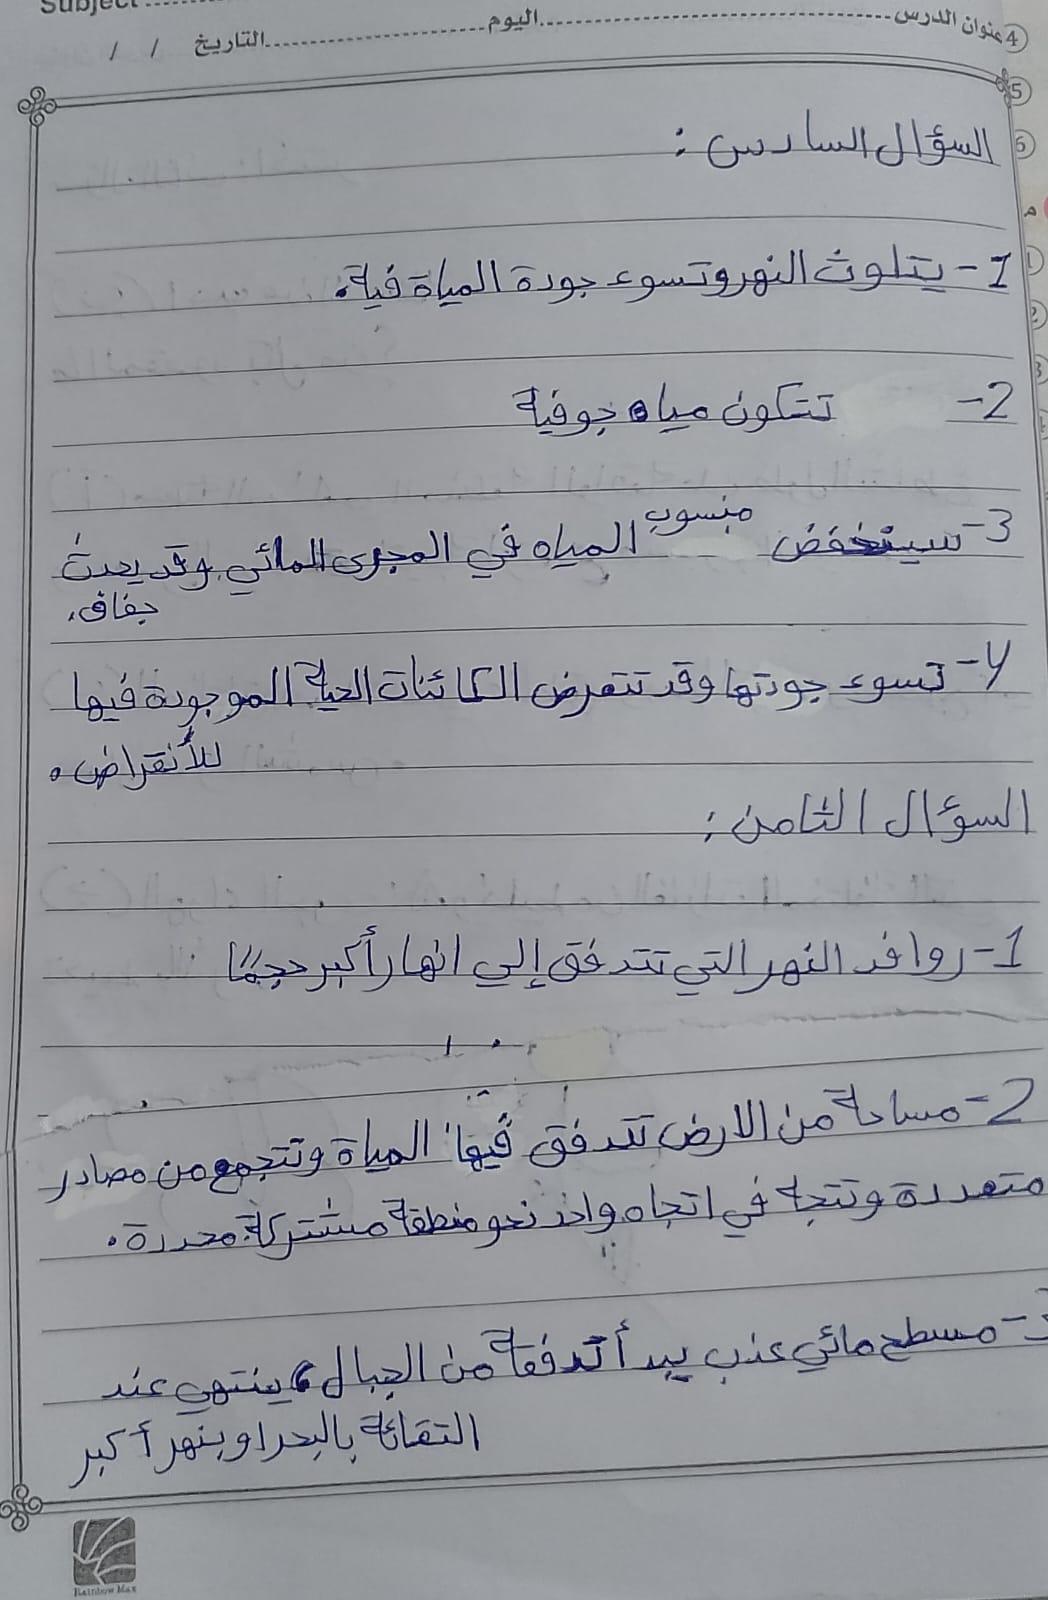 Subject
4 عنوان الدرس اليوم التاريخ / /
5
6
السؤال السادس :
1- يتلوث النهر وتسوء جودة المياة فية.
2- تتكون مياه جوفية
3- سينخفض منسوب المياه في المجرى المائي وقد يحدث
جفاف.
4- تسوء جودتها وقد تتعرض الكائنات الحية الموجودة فيها
للأنقراض.
السؤال الثامن :
1- روافد النهر التي تتدفق إلي انهار أكبر حجمًا
2- مساحة من الارض تتدفق فيها المياة وتتجمع من مصادر
متعددة وتتجة في اتجاه واحد نحو منطقة مشتركة محددة.
3- مسطح مائي عذب يبدأ تدفقة من الجبال، ينتهي عند
التقائة بالبحر او بنهر أكبر
Rainbow Max